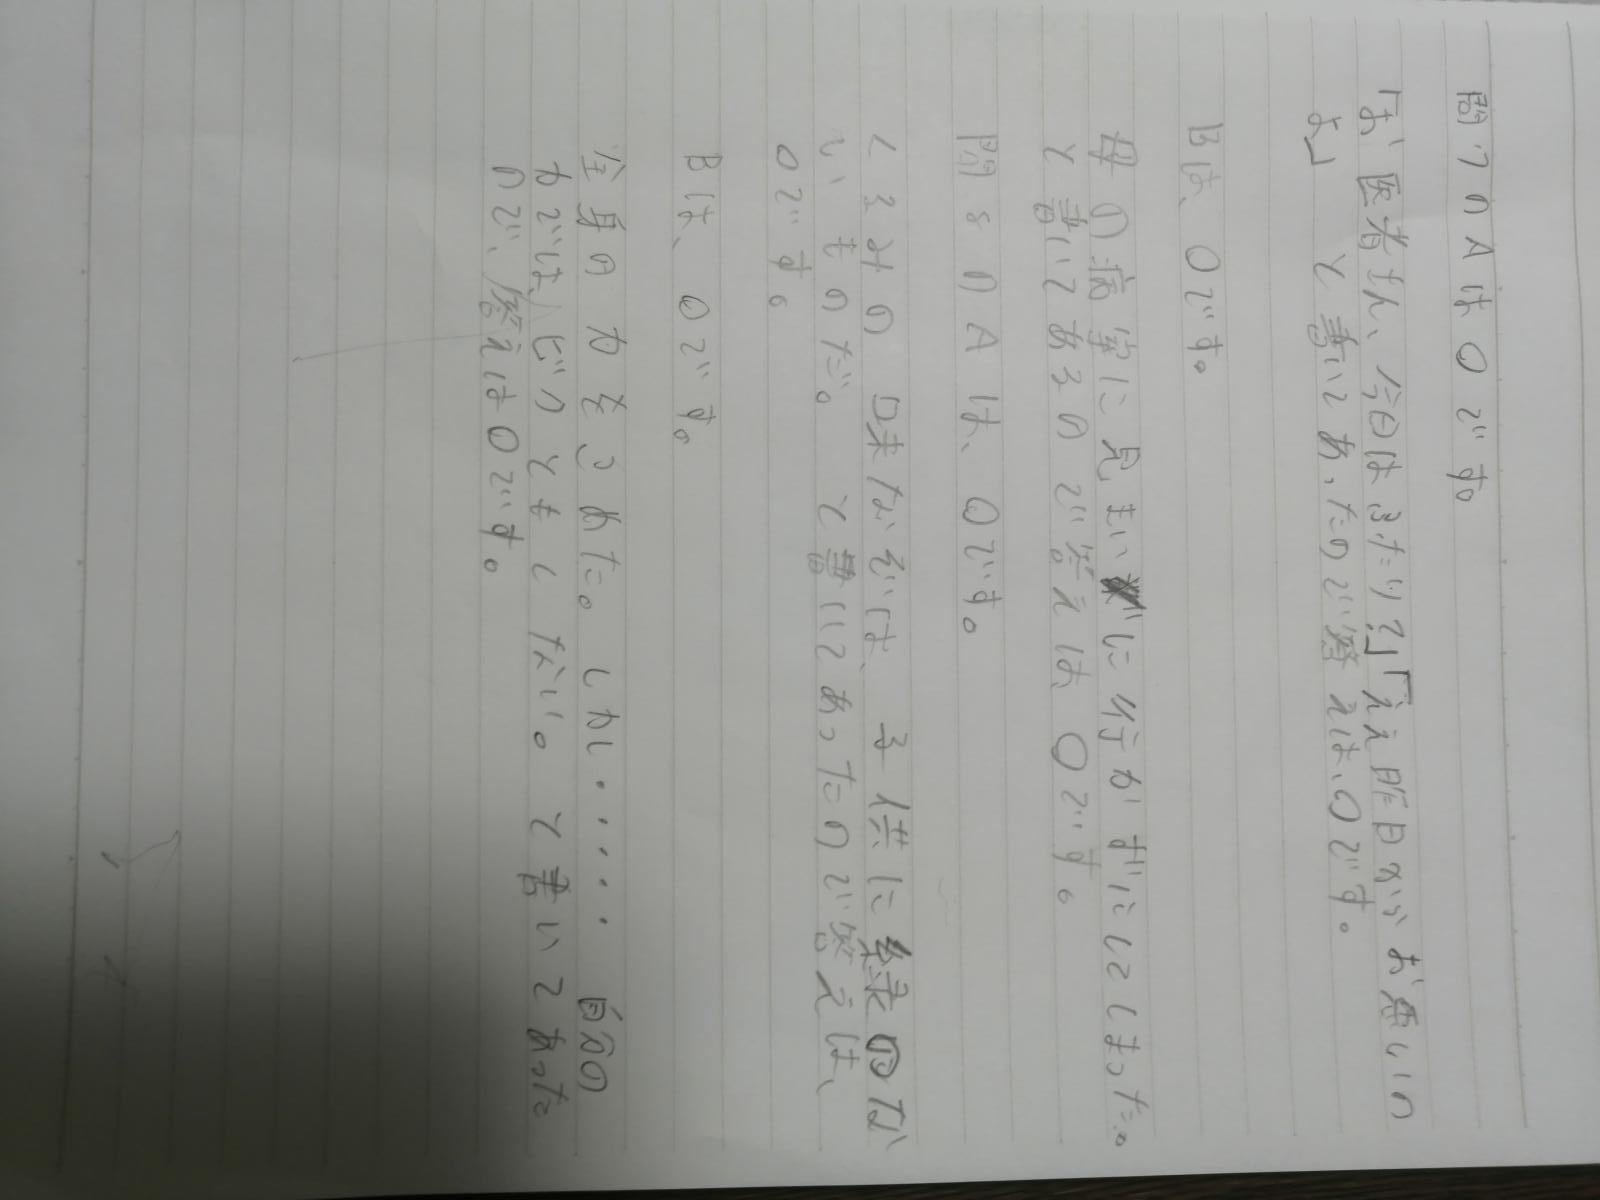 問7のAは〇です。
「お医者さん、今日はふたり?」「ええ昨日からお悪いの
よ」と書いてあったので答えは、〇です。
Bは、〇です。
母の病室に見まいに行かずにいてしまった。
と書いてあるので答えは、〇です。
問8のAは、〇です。
くるみの味なぞは、子供に縁のな
いものだ。と書いてあったので答えは、
〇です。
Bは、〇です。
全身の力をこめた。しかし・・・・・自分の
力では、ビクともしない。と書いてあった
ので、答えは〇です。